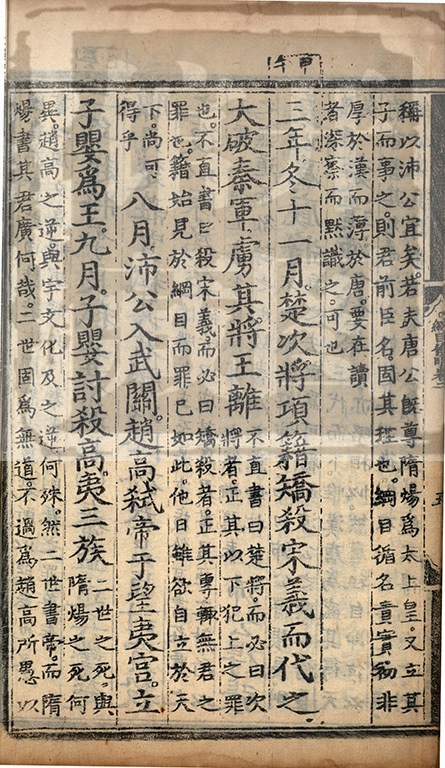 稱以沛公宜矣。若夫唐公旣尊隋煬爲太上皇。又立其
子而事之。則君前臣名。固其理也。綱目循名責實。初非
厚於漢而薄於唐。要在讀
者深察而默識之。可也
甲午
三年冬十一月。楚次將項籍矯殺宋義而代之。
大破秦軍。虜其將王離
不直書曰楚將。而必曰次
將者。正其以下犯上之罪
也。不直書曰殺宋義而必曰矯殺者。正其專輒無君之
罪也。籍始見於綱目而罪已如此。他日雖欲自立於天
下尚可
得乎
八月沛公入武關。趙高弑帝于望夷宮。立
子嬰爲王。九月。子嬰討殺高。夷三族
二世之死。與
隋煬之死何
異。趙高之逆與宇文化及之逆何殊。然二世書帝。而隋
煬書其君廣何哉。二世固爲無道。不過爲趙高所愚以